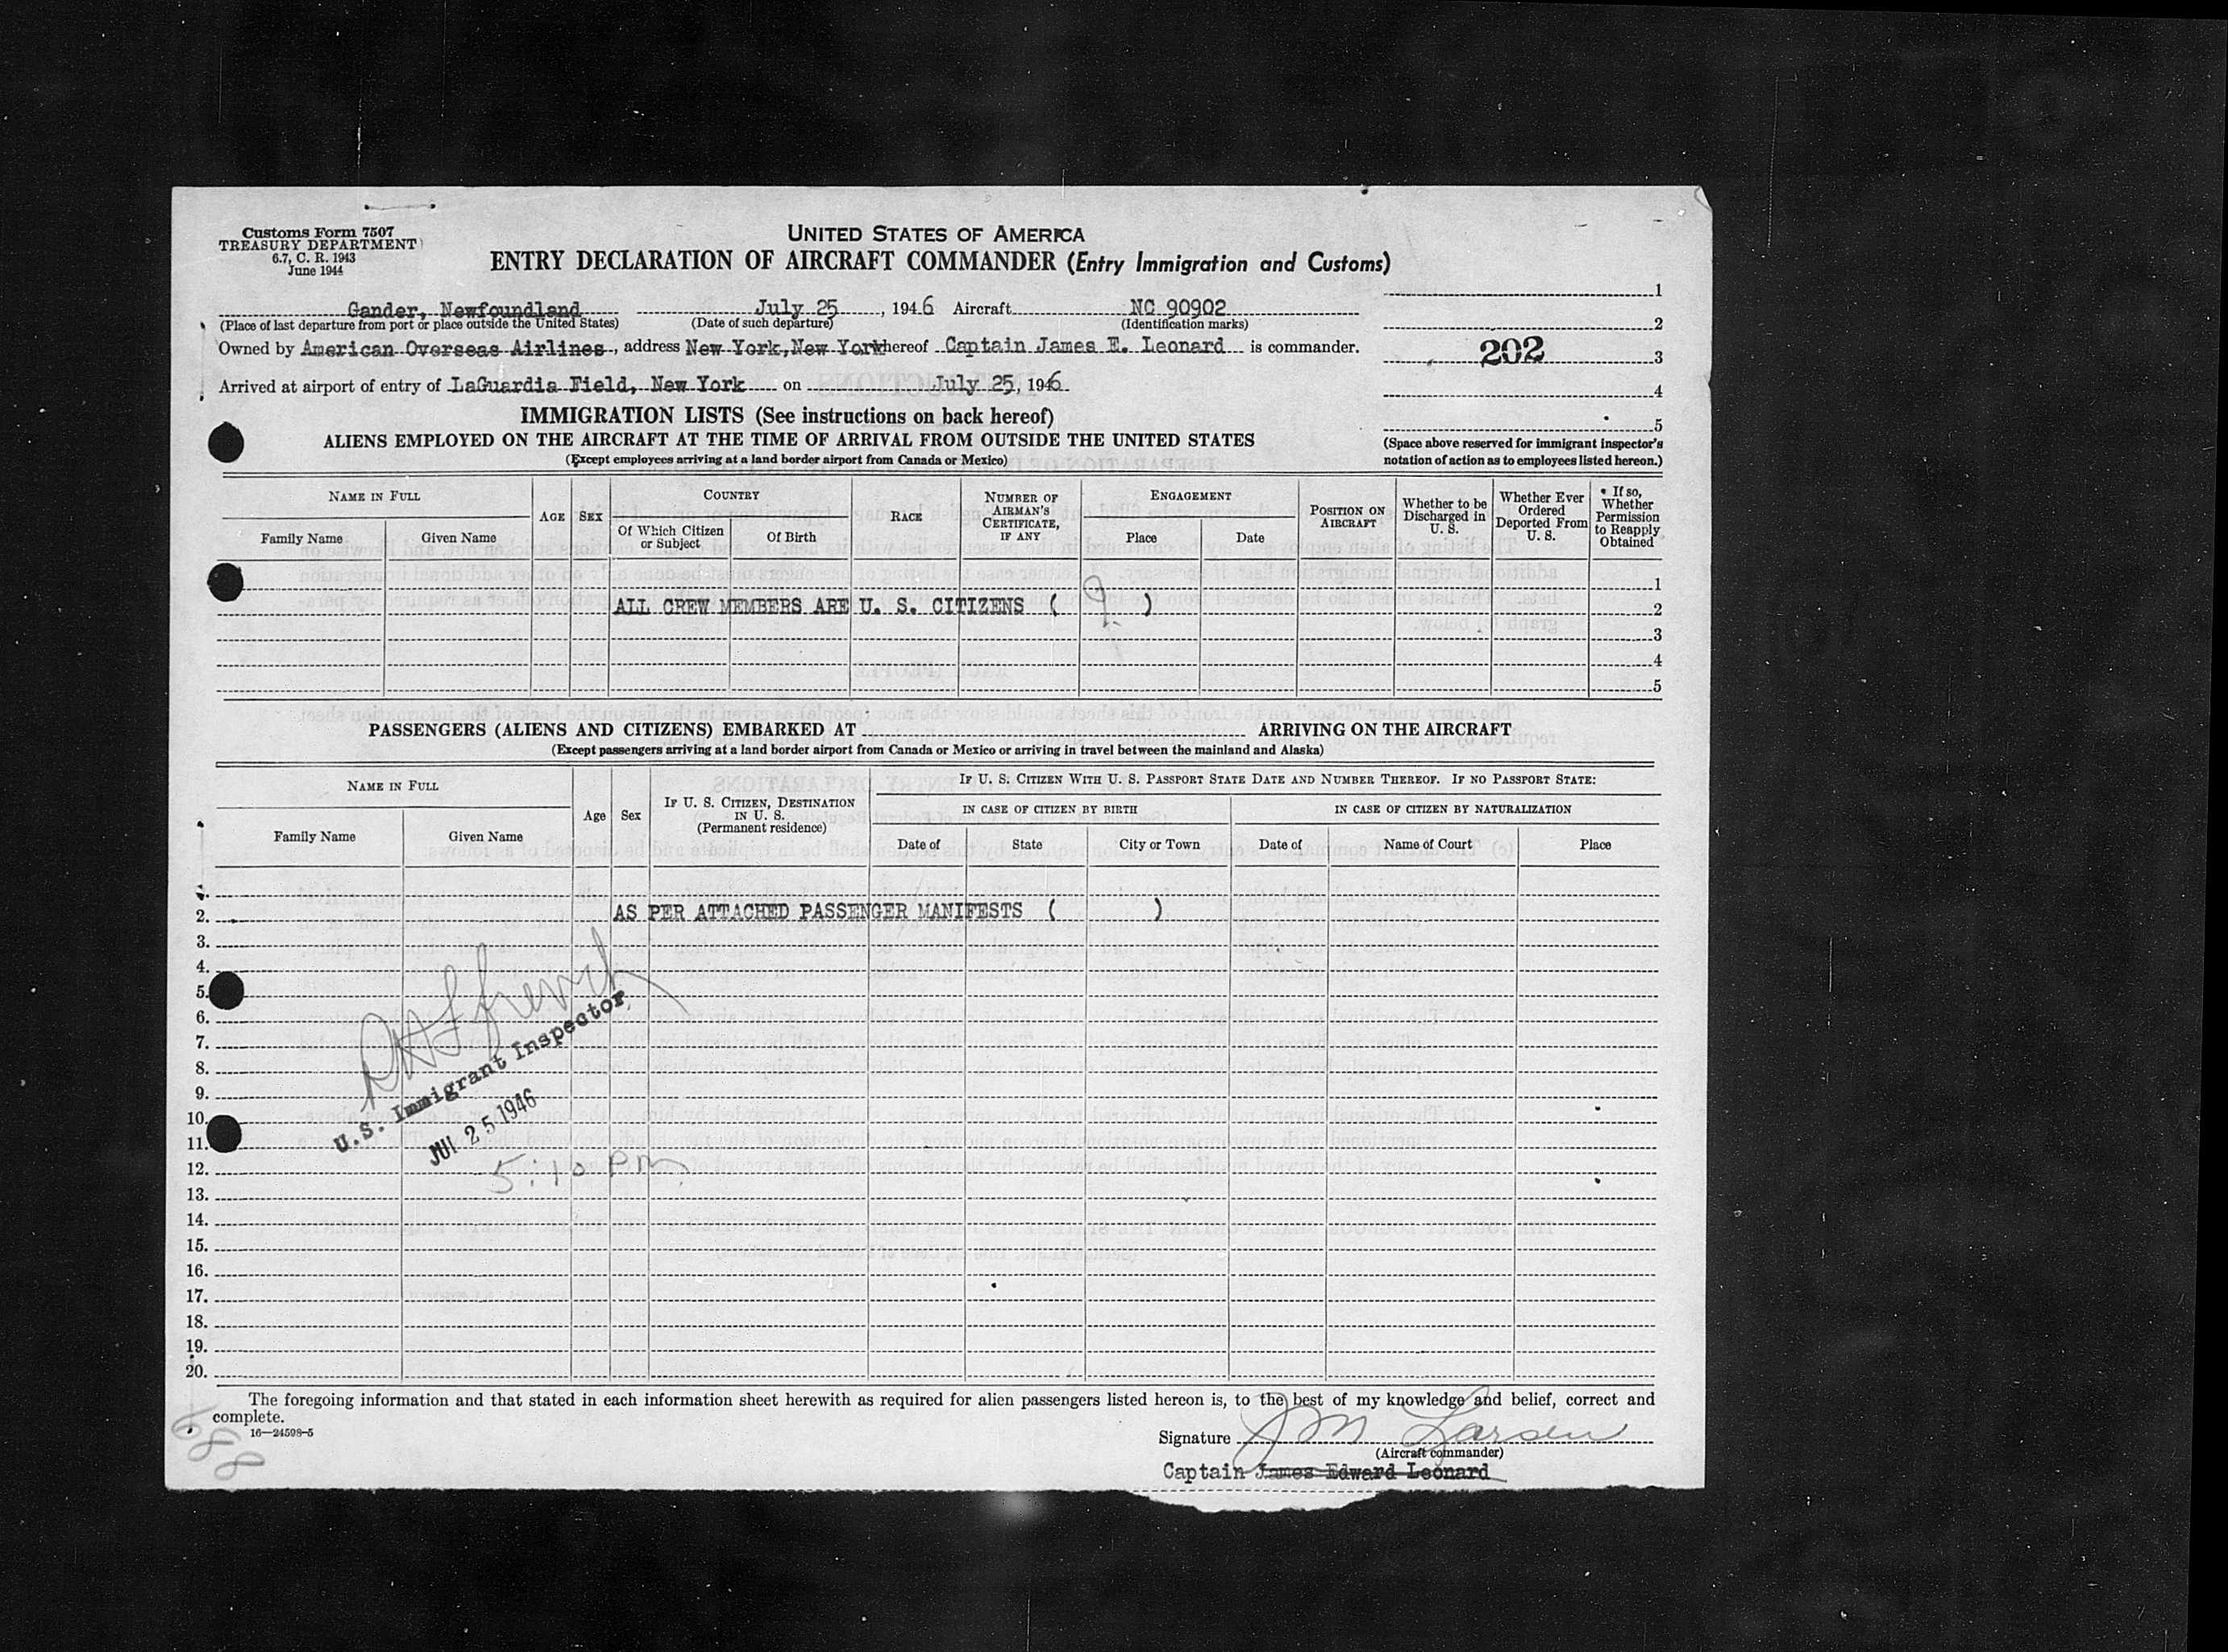 Customs Form 7507
TREASURY DEPARTMENT
6.7, C. R. 1943
June 1944
UNITED STATES OF AMERICA
ENTRY DECLARATION OF AIRCRAFT COMMANDER (Entry Immigration and Customs)
Gander, Newfoundland July 25, 1946 Aircraft NC 90902
(Place of last departure from port or place outside the United States) (Date of such departure) (Identification marks)
Owned by American Overseas Airlines, address New York, New York thereof Captain James E. Leonard is commander.
Arrived at airport of entry of LaGuardia Field, New York on July 25, 1946
1
2
202 3
4
5
(Space above reserved for immigrant inspector's
notation of action as to employees listed hereon.)
IMMIGRATION LISTS (See instructions on back hereof)
ALIENS EMPLOYED ON THE AIRCRAFT AT THE TIME OF ARRIVAL FROM OUTSIDE THE UNITED STATES
(Except employees arriving at a land border airport from Canada or Mexico)
NAME IN FULL
Family Name Given Name
AGE SEX
COUNTRY
Of Which Citizen or Subject Of Birth
RACE
NUMBER OF AIRMAN'S CERTIFICATE, IF ANY
ENGAGEMENT
Place Date
POSITION ON AIRCRAFT
Whether to be Discharged in U. S.
Whether Ever Ordered Deported From U. S.
If so, Whether Permission to Reapply Obtained
1
ALL CREW MEMBERS ARE U. S. CITIZENS ( 9 ) 2
3
4
5
PASSENGERS (ALIENS AND CITIZENS) EMBARKED AT ARRIVING ON THE AIRCRAFT
(Except passengers arriving at a land border airport from Canada or Mexico or arriving in travel between the mainland and Alaska)
NAME IN FULL
Family Name Given Name
Age Sex
IF U. S. CITIZEN, DESTINATION IN U. S. (Permanent residence)
IF U. S. CITIZEN WITH U. S. PASSPORT STATE DATE AND NUMBER THEREOF. IF NO PASSPORT STATE:
IN CASE OF CITIZEN BY BIRTH IN CASE OF CITIZEN BY NATURALIZATION
Date of State City or Town Date of Name of Court Place
2. AS PER ATTACHED PASSENGER MANIFESTS ( )
3.
4.
5.
6.
7.
8.
9.
10.
11.
12.
13.
14.
15.
16.
17.
18.
19.
20.
U.S. Immigrant Inspector
JUL 25 1946
5:10 PM
The foregoing information and that stated in each information sheet herewith as required for alien passengers listed hereon is, to the best of my knowledge and belief, correct and
complete.
16—24598-5
688
Signature J M Larsen
(Aircraft commander)
Captain James Edward Leonard